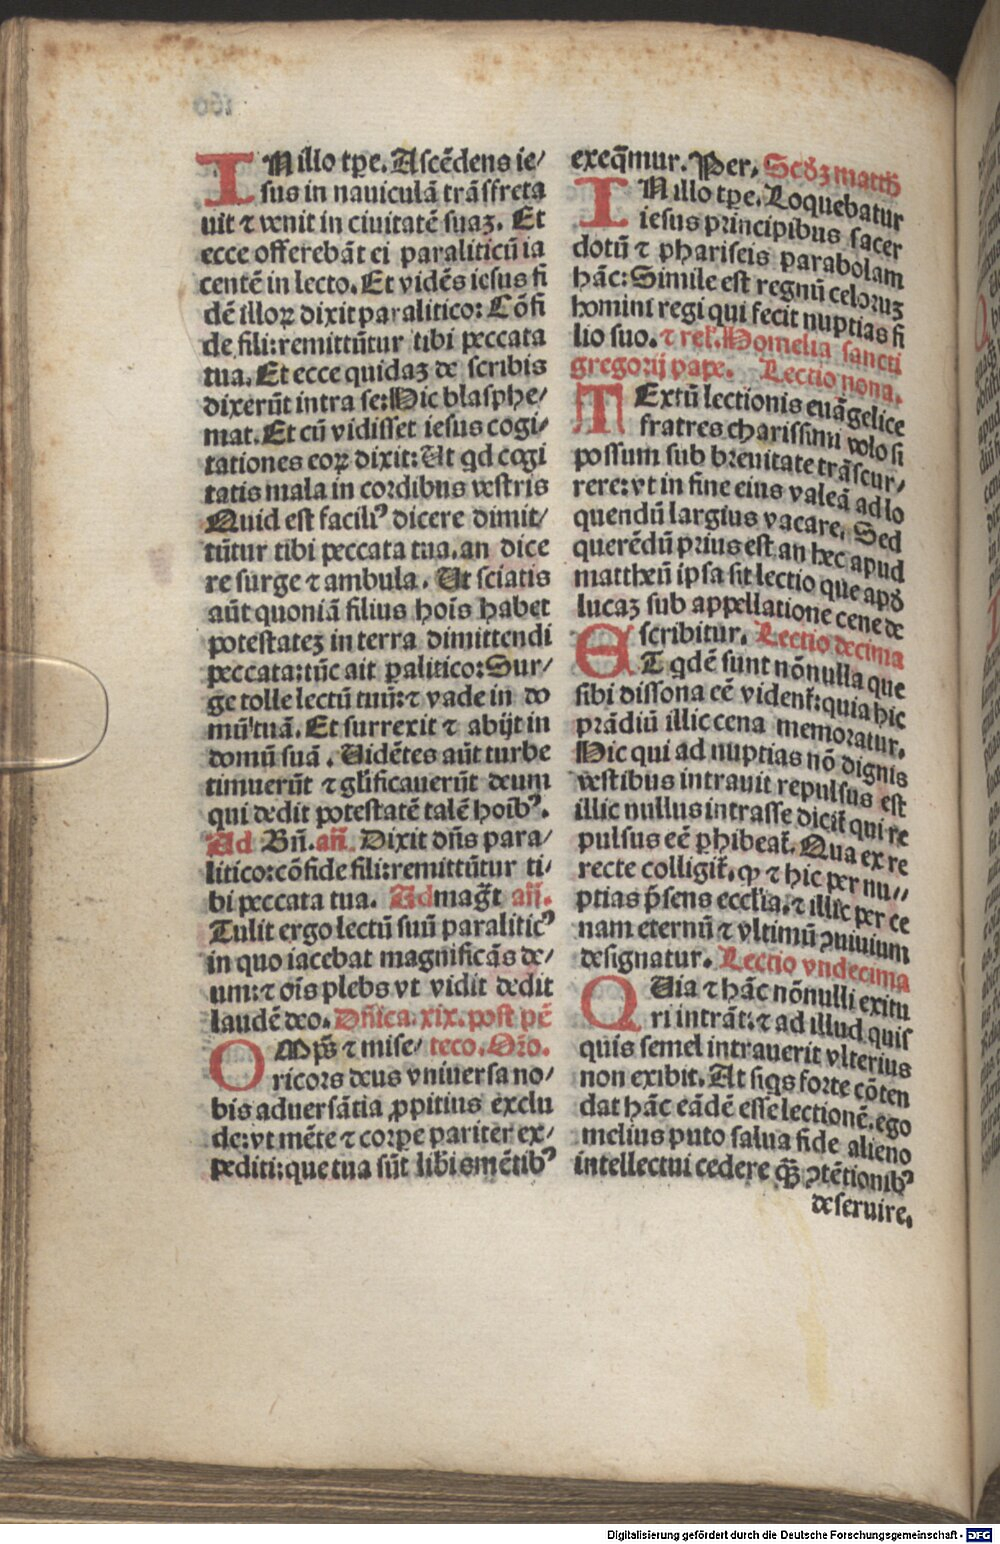 IN illo tp̄e. Ascēdens ie/
sus in nauiculā trāsfreta
uit ⁊ venit in ciuitatē suaꝫ. Et
ecce offerebāt ei paraliticū ia
centē in lecto. Et vidēs iesus fi
dē illoꝝ dixit paralitico: Cōfi
de fili: remittūtur tibi peccata
tua. Et ecce quidaꝫ de scribis
dixerūt intra se: Hic blasphe/
mat. Et cū vidisset iesus cogi/
tationes eoꝝ dixit: Ut qd cogi
tatis mala in cordibus vestris
Quid est faciliꝰ dicere dimit/
tūtur tibi peccata tua. an dice
re surge ⁊ ambula. Ut sciatis
aūt quoniā filius hoīs habet
potestateꝫ in terra dimittendi
peccata: tūc ait ꝑalitico: Sur/
ge tolle lectū tuū: ⁊ vade in do
mū tuā. Et surrexit ⁊ abijt in
domū suā. Uidētes aūt turbe
timuerūt ⁊ gl̄ificauerūt deum
qui dedit potestatē talē hoībꝰ.
Ad Bn̄. an̄. Dixit dn̄s para/
litico: cōfide fili: remittūtur ti/
bi peccata tua. Ad mag̃t an̄.
Tulit ergo lectū suū paraliticꝰ
in quo iacebat magnificās de/
um: ⁊ oīs plebs vt vidit dedit
laudē deo. Dn̄ica .xix. post pē
OMp̄s ⁊ mise/ teco. Oro.
ricors deus vniuersa no/
bis aduersātia ꝓpitius exclu
de: vt mēte ⁊ corpe pariter ex/
pediti: que tua sūt libis mētibꝰ
exeq̄mur. Per. Scd̄ꝫ matth̄
IN illo tp̄e. Loquebatur
iesus principibus sacer
dotū ⁊ phariseis parabolam
hāc: Simile est regnū celoruꝫ
homini regi qui fecit nuptias fi
lio suo. ⁊ rel. Homelia sancti
gregorij pape. Lectio nona.
TExtū lectionis euāgelice
fratres charissimi volo si
possum sub breuitate trāscur/
rere: vt in fine eius valeā ad lo
quendū largius vacare. Sed
querēdū prius est an hec apud
mattheū ipsa sit lectio que apd̄
lucaꝫ sub appellatione cene de
scribitur. Lectio decima
ET qdē sunt nōnulla que
sibi dissona eē vident̄: quia hic
prādiū illic cena memoratur.
Hic qui ad nuptias nō dignis
vestibus intrauit repulsus est
illic nullus intrasse dicit̄ qui re
pulsus eē ꝓhibeat̄. Qua ex re
recte colligit̄. ꝙ ⁊ hic per nu//
ptias p̄sens eccl̄ia. ⁊ illic per ce
nam eternū ⁊ vltimū ꝯuiuium
designatur. Lectio vndecima
QUia ⁊ hāc nōnulli exitu
ri intrāt: ⁊ ad illud quis
quis semel intrauerit vlterius
non exibit. At siqs forte cōten
dat hāc eādē esse lectionē. ego
melius puto salua fide alieno
intellectui cedere q̄ꝫ ꝯtētionibꝰ
deseruire.
Digitalisierung gefördert durch die Deutsche Forschungsgemeinschaft - DFG